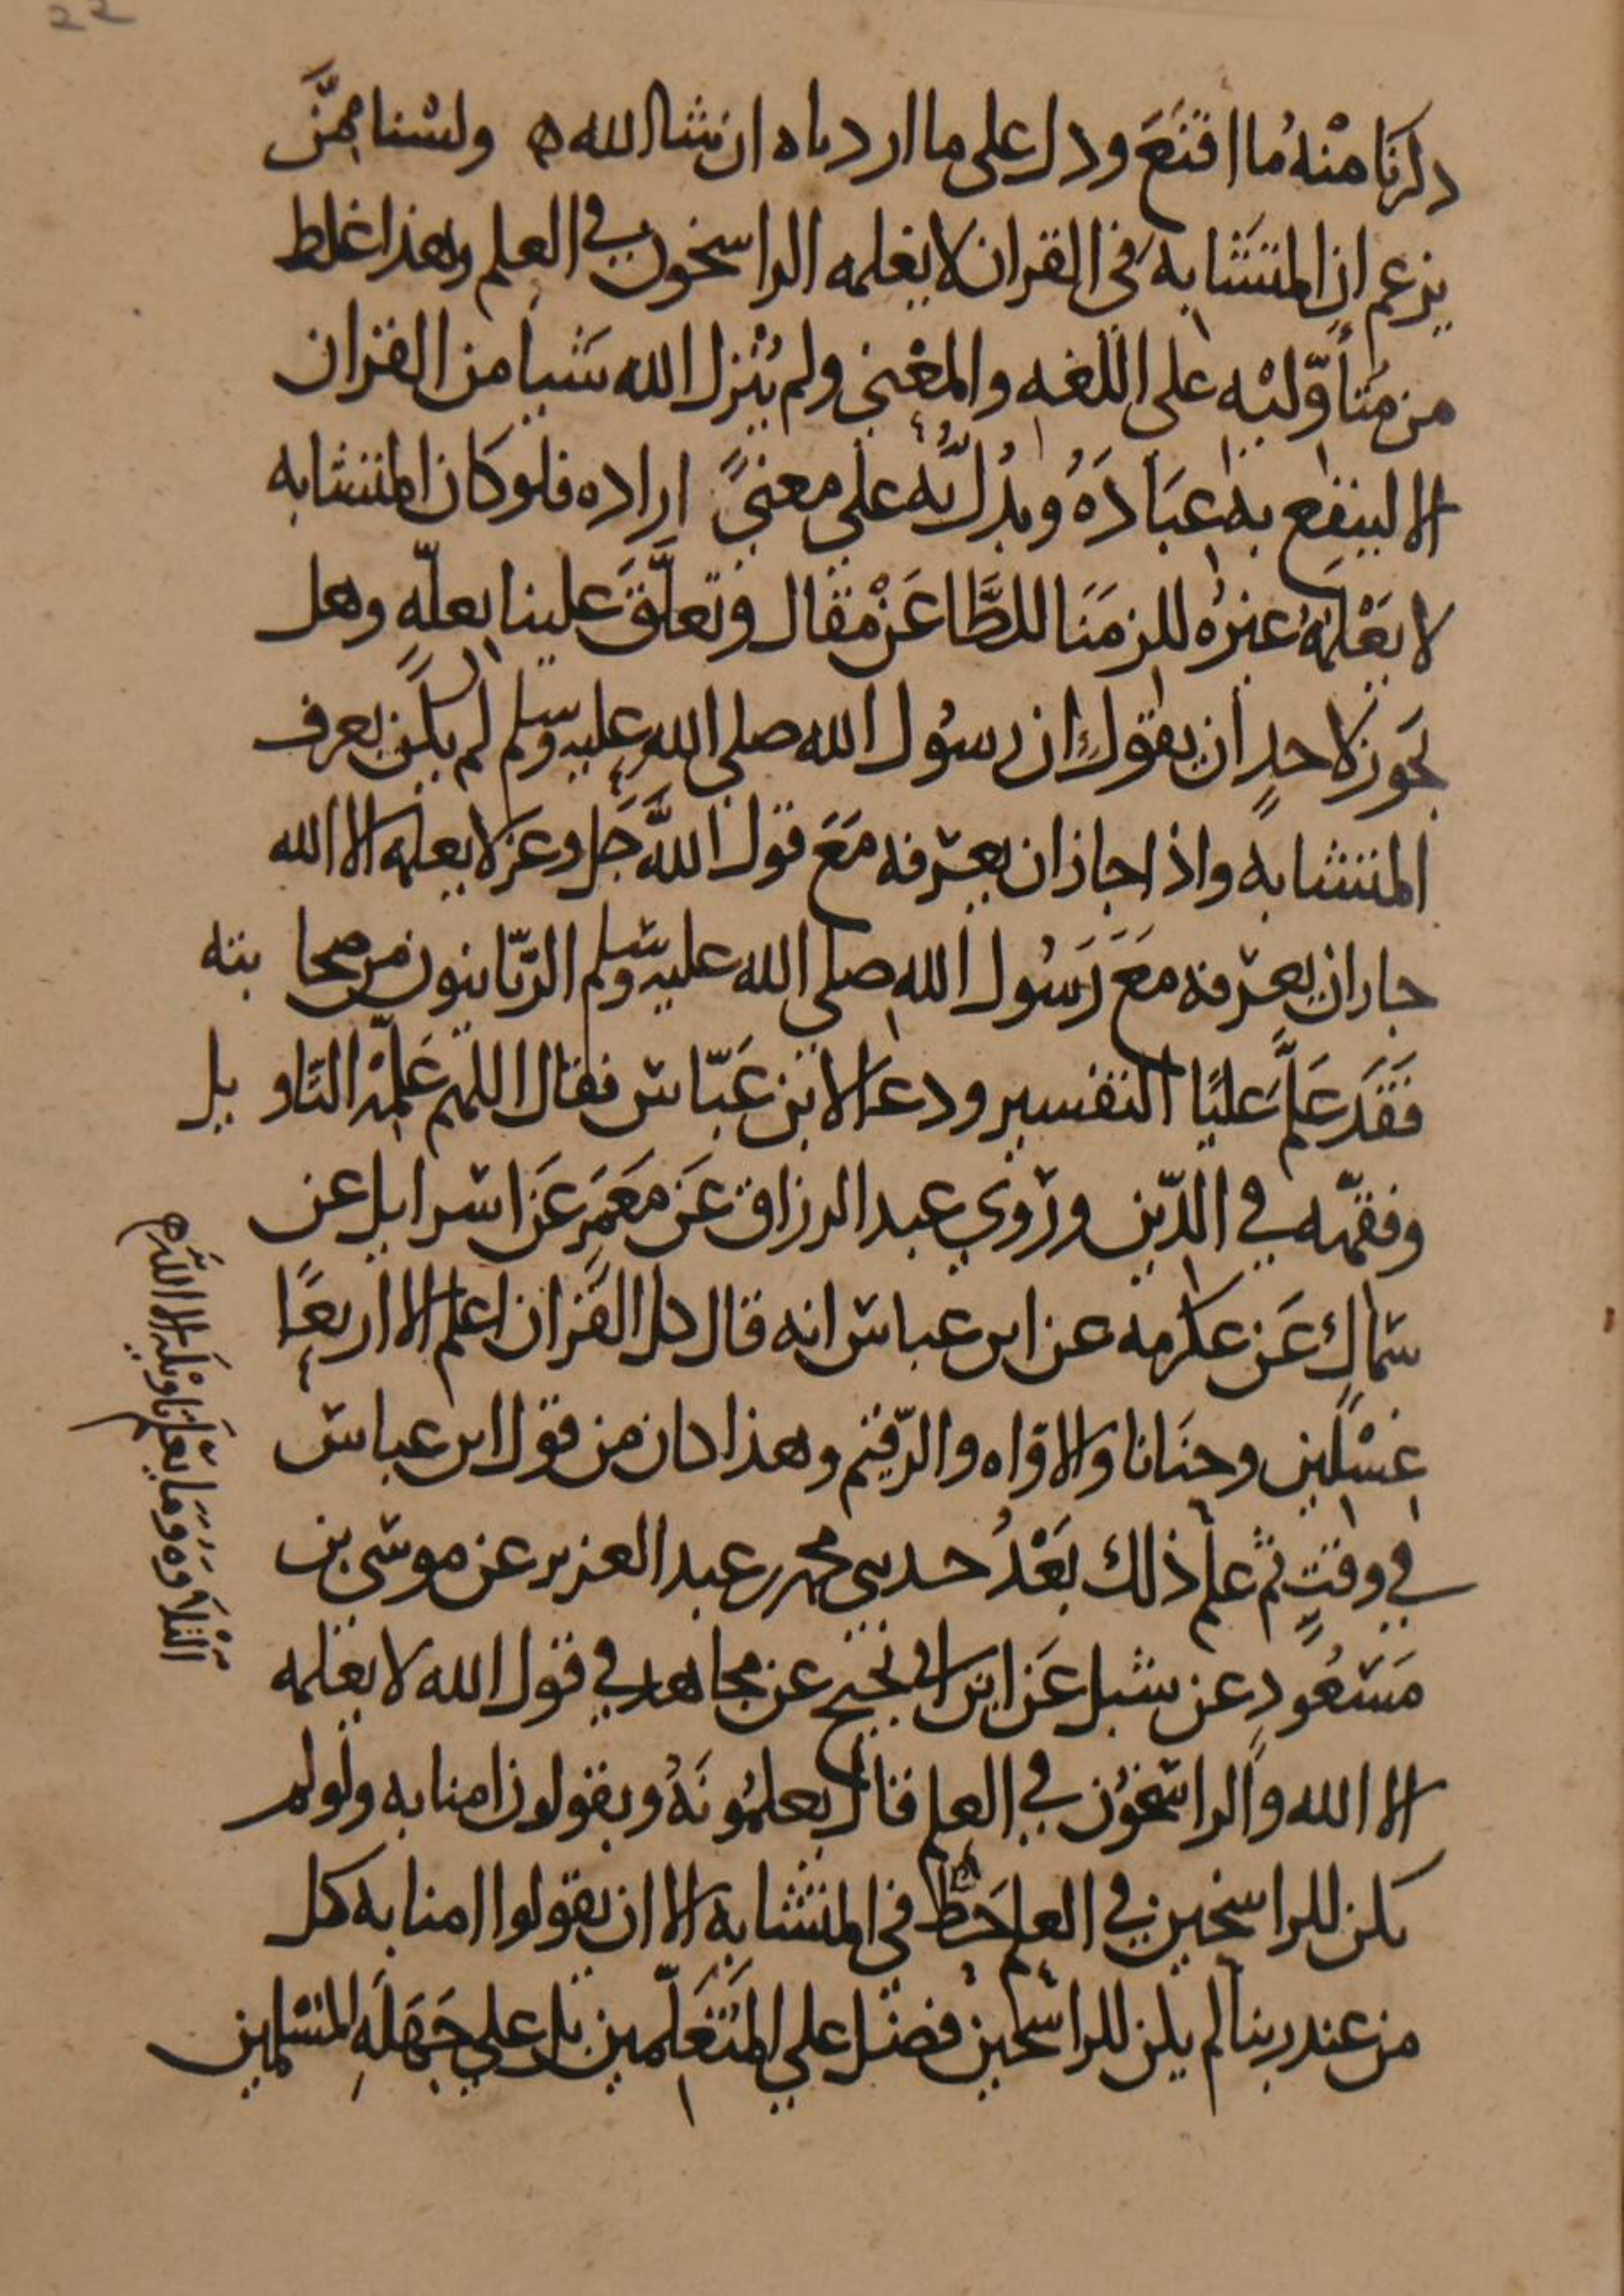 22
ذكرنا مِنْهُ ما اقنَعَ ودل على ما اردناه ان شا الله ه ولسْنا ممَّن
يزعم ان المتَشابهَ في القران لا يعلمه الراسخون في العلم وهذا غلط
من مُتأوّليْه على اللغه والمعْنى ولم يُنْزل الله شَيا من القران
الا لينفع به عِبَادَهُ ويدُلَّ به على معنىً اراده فلو كان المتشابه
لا يَعْلمهُ غيرُه للزمَنَا للطَّاعَنْ مقال وتعلَّقَ علينا بعلّهٍ وهل
يَجوز لاحدٍ ان يقول ان رسُول الله صلى الله عليه وسلم لم يكن يعرف
المتشابه واذا جاز ان يعرفه مَعَ قول اللَّه جَل وعَز لا يعلمه الا الله
جاز ان يعرفه مَعَ رَسُول الله صلى الله عليه وسلم الرّبّانيون من صحابته
فَقَد عَلَّم عَليًا التفسير ودعا لابن عَبّاس فقال اللهم عَلِّمْه التَاويل
وفقّهه في الدّين ورَوى عبد الرزاق عَن مَعْمَر عَن اسرايل عن
سماكٍ عَن عكرمه عن ابن عباس انه قال كل القُران اعلم الا اربعًا
غِسْلين وحنَانا والاوّاه والرّقيم وهذا كان من قول ابن عباس
في وقتٍ ثم علم ذلك بَعْدُ حدثني محمد بن عبد العزيز عن موسى بن
مَسْعُودٍ عن شبل عَن ابن ابي نجيح عن مجاهد في قول الله لا يعلمه
الا الله والراسخُون في العلم قال يعلمُونَهُ ويقولون امنا به ولو لم
يكن للراسخين في العلم حَظ في المتشابه الا ان يقولوا امنا به كل
من عند ربنا لم يكن للراسخين فضل على المتَعَلّمين بل على جَهَلَهِ المسْلمين
التلاوَه وَمَا يَعْلَم تَاوِيْلَه الا اللَّه